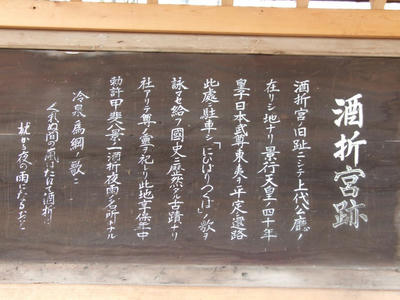 酒折宮跡
酒折宮ノ旧趾ニシテ上代公廳ノ
在リシ地ナリ景行天皇ノ四十年
皇子日本武尊東夷ヲ平定ノ還路
此處ニ駐車シ「にひばりつくば」ノ歌ヲ
詠マセ給フ國史ニ歴然タル古蹟ナリ
社アリテ尊ノ霊ヲ祀レリ此地享保年中
勅許甲斐八景ノ一酒折夜雨ノ名所トナル
冷泉為綱ノ歌に
くれぬ間の風
枕から夜の雨になるおと